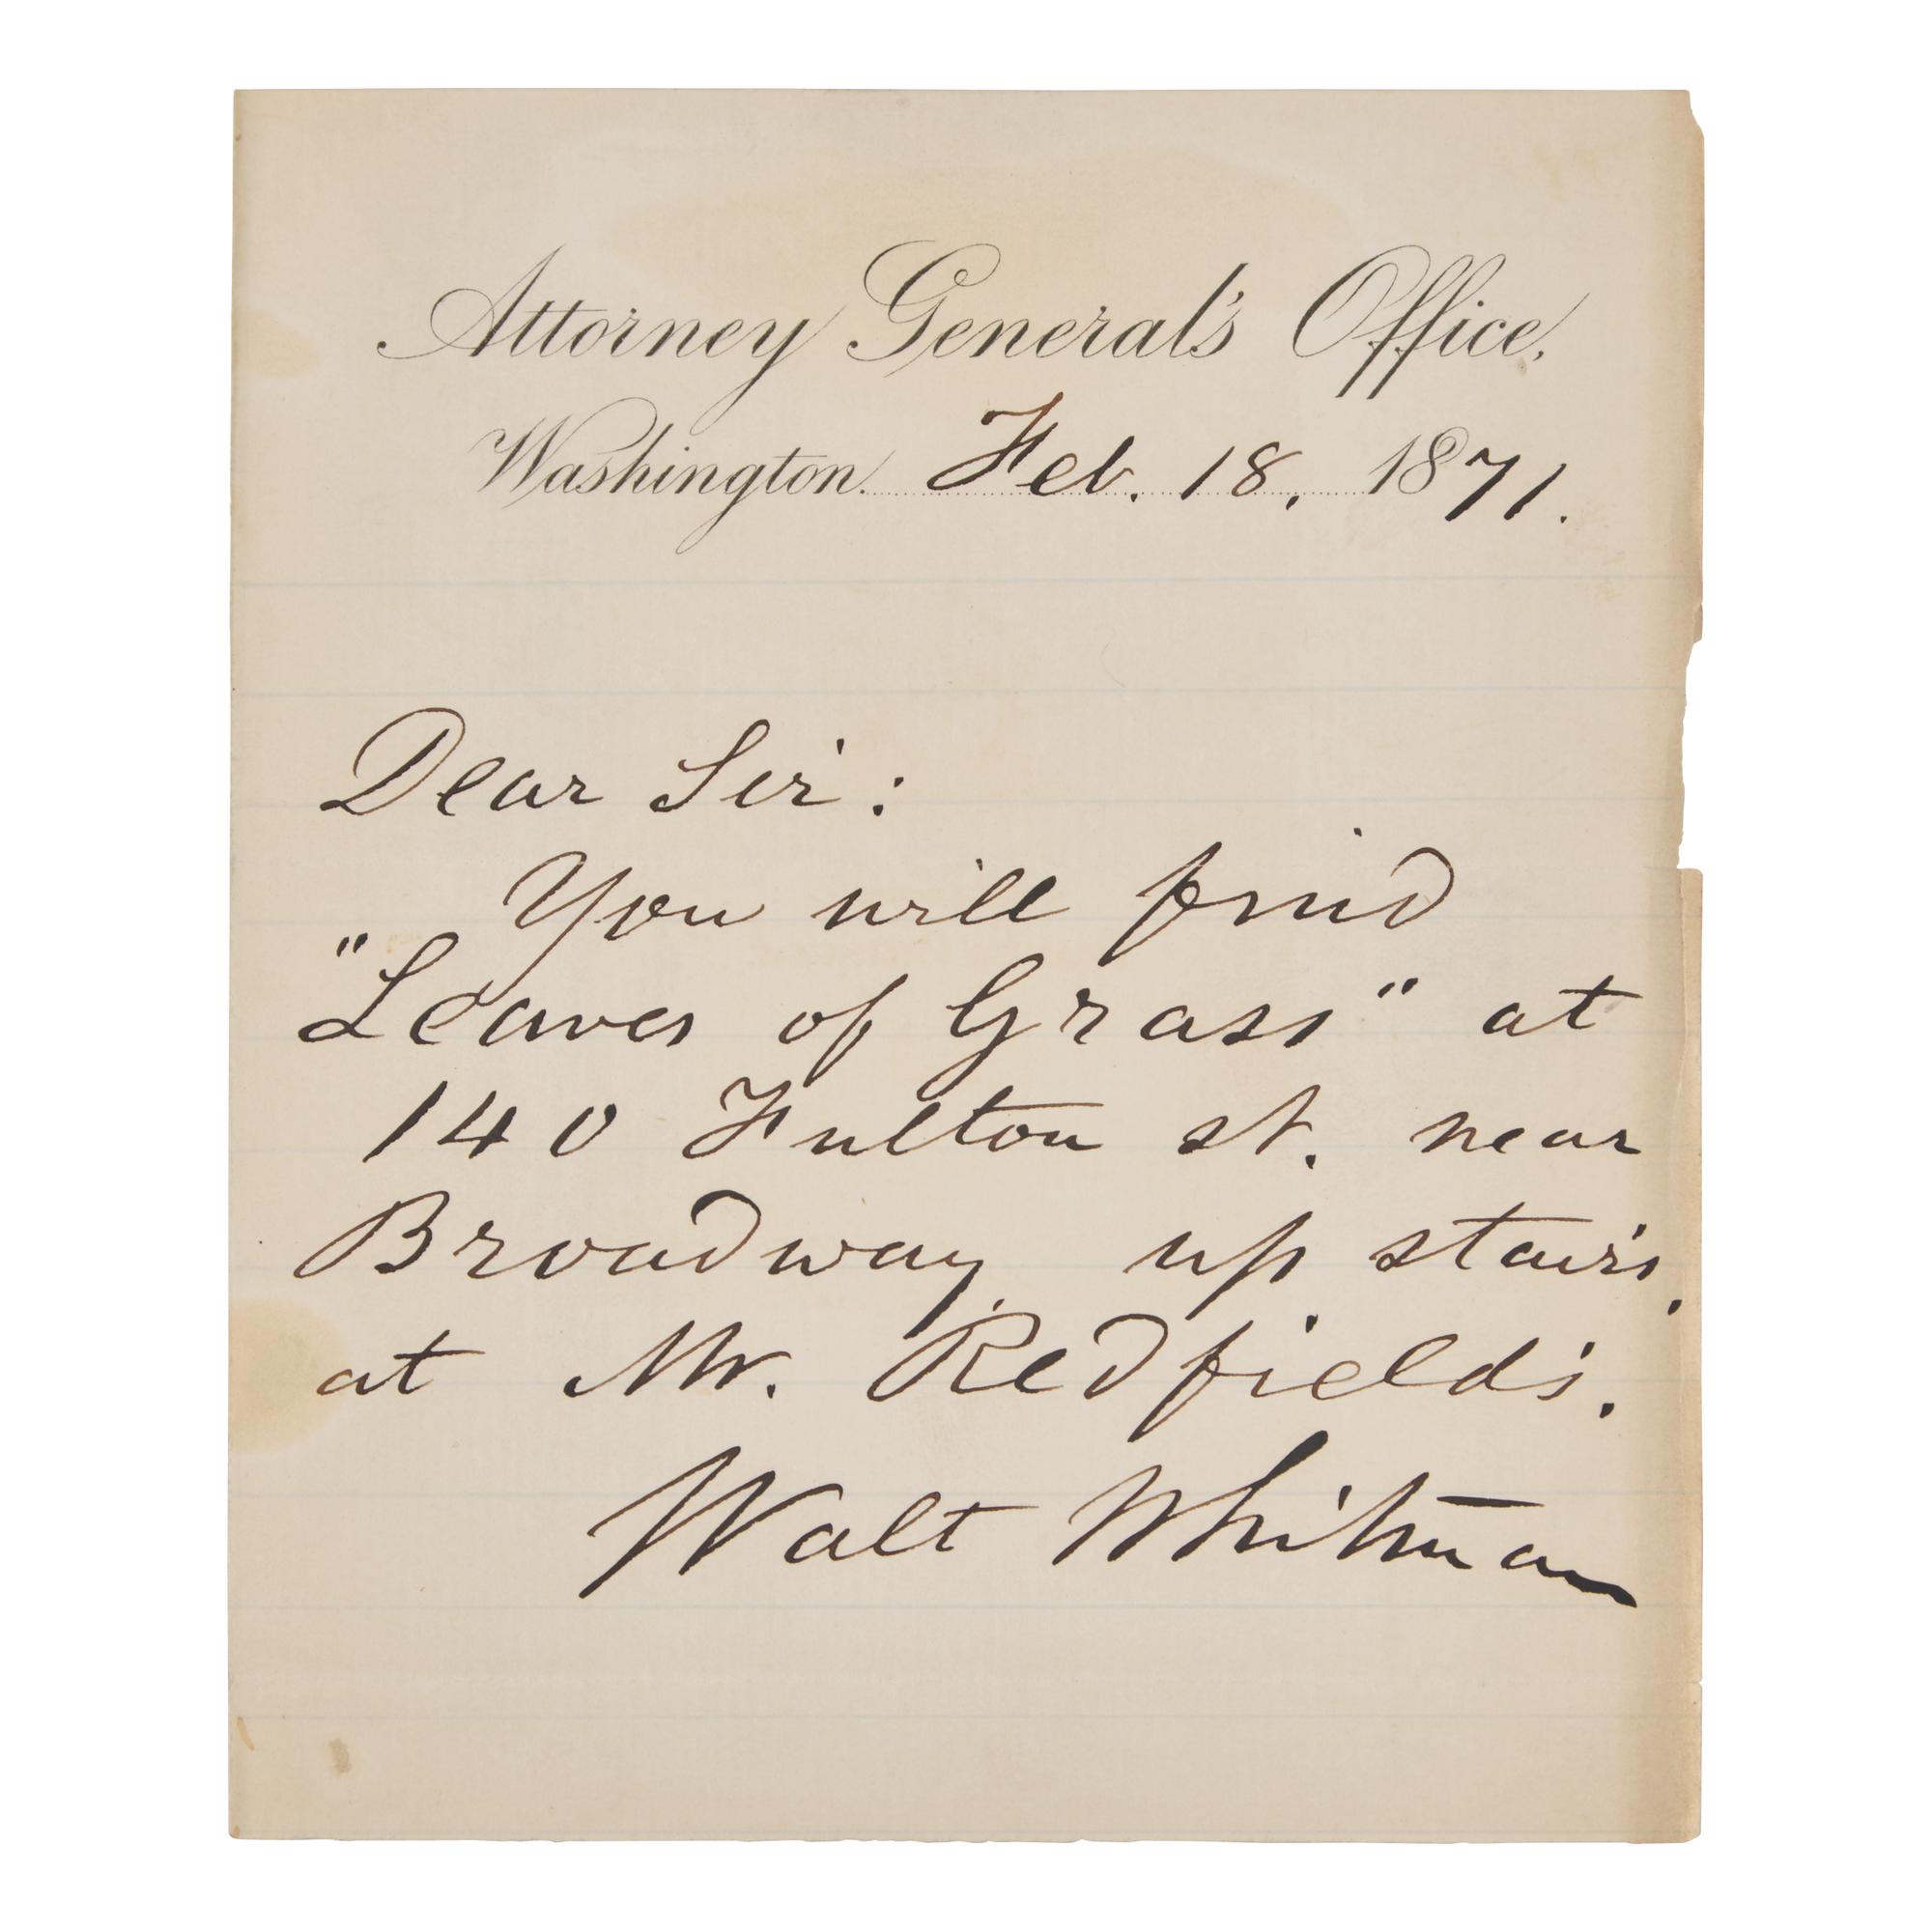 Attorney General's Office,
Washington Feb. 18, 1871.
Dear Sir:
You will find
"Leaves of Grass" at
140 Fulton st. near
Broadway, up stairs,
at Mr. Redfield's.
Walt Whitman